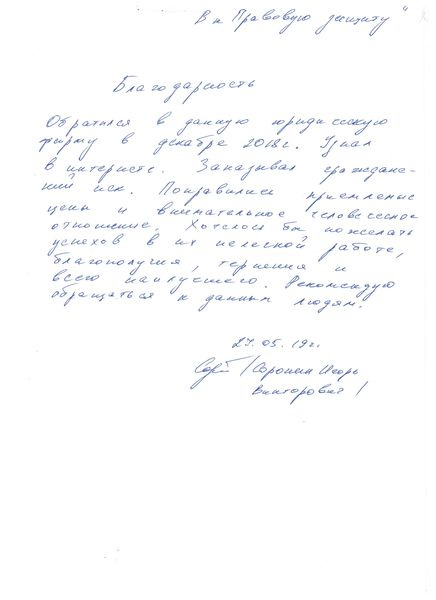 В « Правовую защиту"
Благодарность
Обратился в данную юридическую
фирму в декабре 2018г. Узнал
в интернете. Заказывал гражданс-
кий иск. Понравились приемлемые
цены и внимательное человеческое
отношение. Хотелось бы пожелать
успехов в их нелегкой работе,
благополучия, терпения и
всего наилучшего. Рекомендую
обращаться к данным людям.
27.05.19г.
/ Игорь
Викторович /